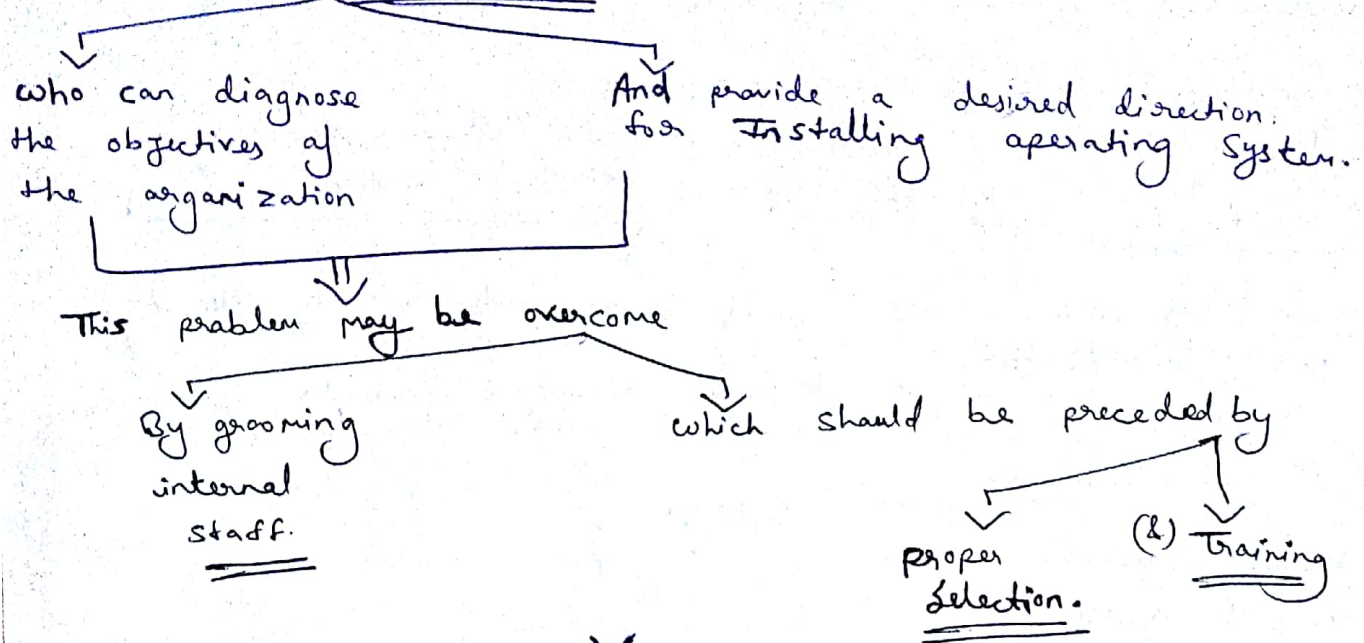 who can diagnose
the objectives of
the organization
And provide a desired direction.
for Installing operating System.
This problem may be overcome
By grooming
internal
staff.
which should be preceded by
proper
Selection.
(&) Training